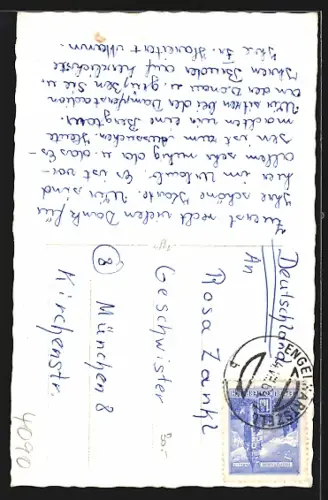 Zuerst recht vielen Dank für
Ihre schöne Karte. Wir sind
hier im Urlaub. Es ist vor
allem sehr ruhig u. das Es-
sen ist zum aussuchen. Heute
machten wir eine Bergtour.
Wir sitzen bei der Dampferstation
an der Donau u. grüßen Sie u.
Ihren Bruder auf herzlichste
Ihre Fr. u. Mann.
Deutschland
An
Rosa Zankl
Geschwister
8 München 8
Kirchenstr.
ENGELHARTSZELL
4090